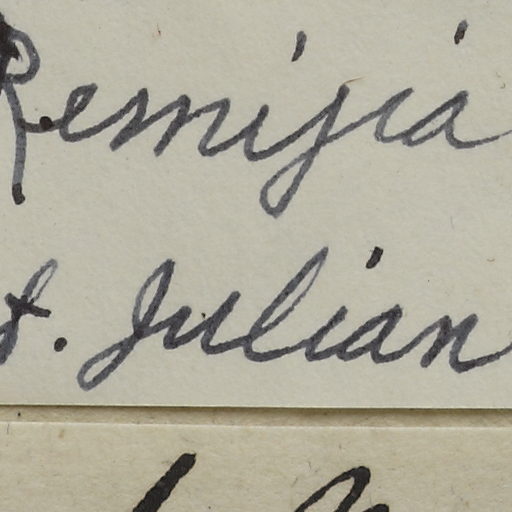 Remijia
t. Julian